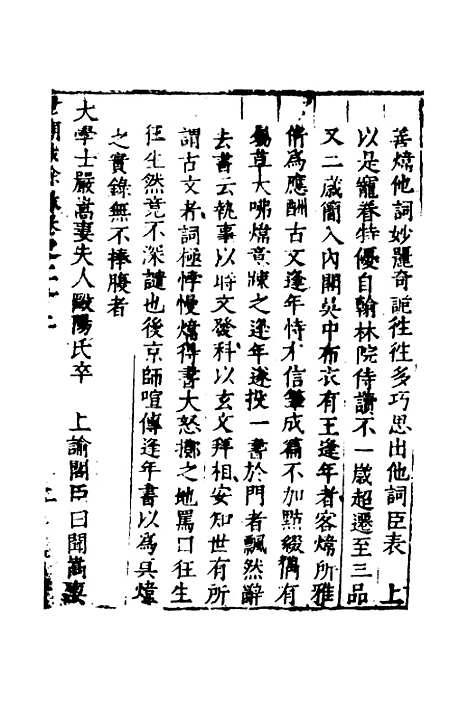 善煒他詞妙麗奇詭往往多巧思出他詞臣表　上
以是寵眷特優自翰林院侍讀不一歲超遷至三品
又二歲簡入內閣吳中布衣有王逢年者客煒所雅
倩為應酬古文逢年恃才信筆成篇不加點綴偶有
大咈煒意煉之逢年遂投一書於門者飄然辭
去書云執事以時文發科以玄文拜相安知世有所
謂古文者詞極悖慢煒得書大怒擲之地罵口狂生
狂生然竟不深譴也後京師喧傳逢年書以為具煒
之實錄無不捧腹者
大學士嚴嵩妻夫人歐陽氏卒　上諭閣臣曰聞嵩妻